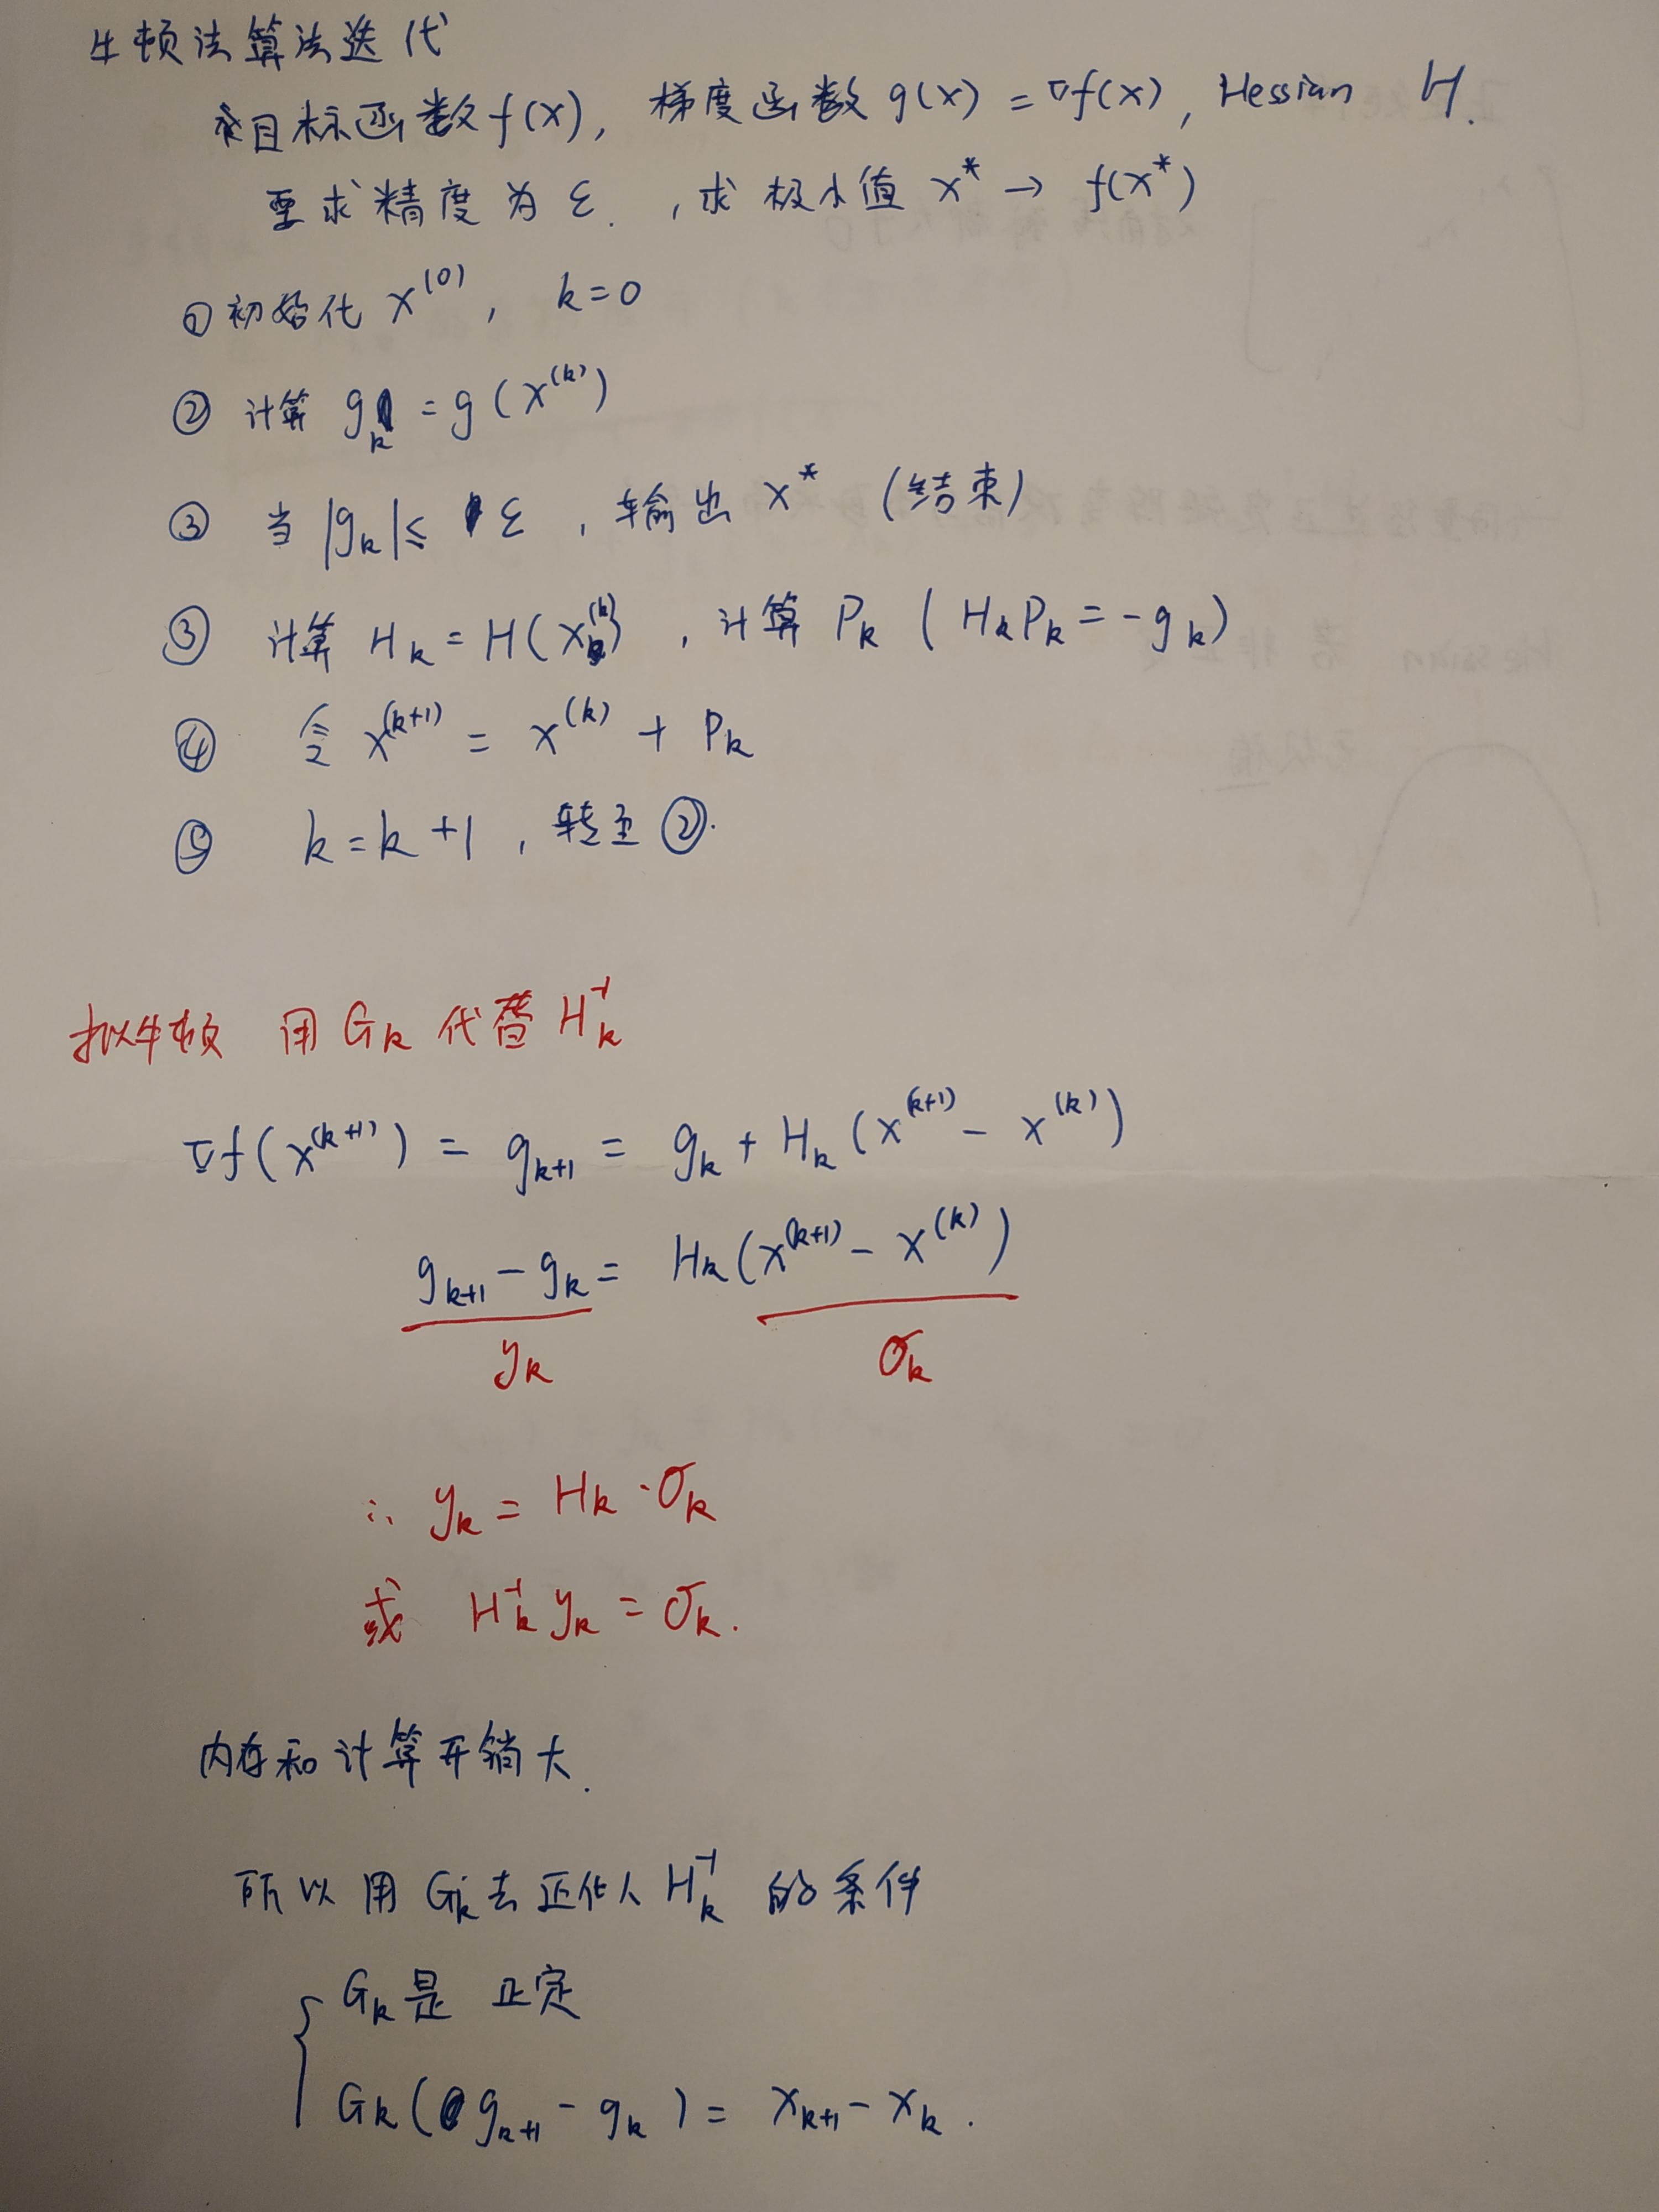 牛顿法算法迭代
求目标函数f(x), 梯度函数g(x) = ∇f(x), Hessian H.
要求精度为 ε. , 求极小值 x* → f(x*)
① 初始化 x⁽⁰⁾, k=0
② 计算 gₖ = g(x⁽ᵏ⁾)
③ 当 |gₖ| ≤ ε , 输出 x* (结束)
③ 计算 Hₖ = H(x⁽ᵏ⁾) , 计算 Pₖ ( HₖPₖ = -gₖ)
④ 令 x⁽ᵏ⁺¹⁾ = x⁽ᵏ⁾ + Pₖ
⑤ k = k+1 , 转至 ②.
拟牛顿 用 Gₖ 代替 Hₖ⁻¹
∇f(x⁽ᵏ⁺¹⁾) = gₖ₊₁ = gₖ + Hₖ (x⁽ᵏ⁺¹⁾ - x⁽ᵏ⁾)
gₖ₊₁ - gₖ = Hₖ(x⁽ᵏ⁺¹⁾ - x⁽ᵏ⁾)
yₖ σₖ
∴ yₖ = Hₖ · σₖ
或 Hₖ⁻¹ yₖ = σₖ.
内存和计算开销大.
所以用 Gₖ去 Hₖ⁻¹ 的条件
{ Gₖ是 正定
Gₖ( gₖ₊₁ - gₖ ) = xₖ₊₁ - xₖ .